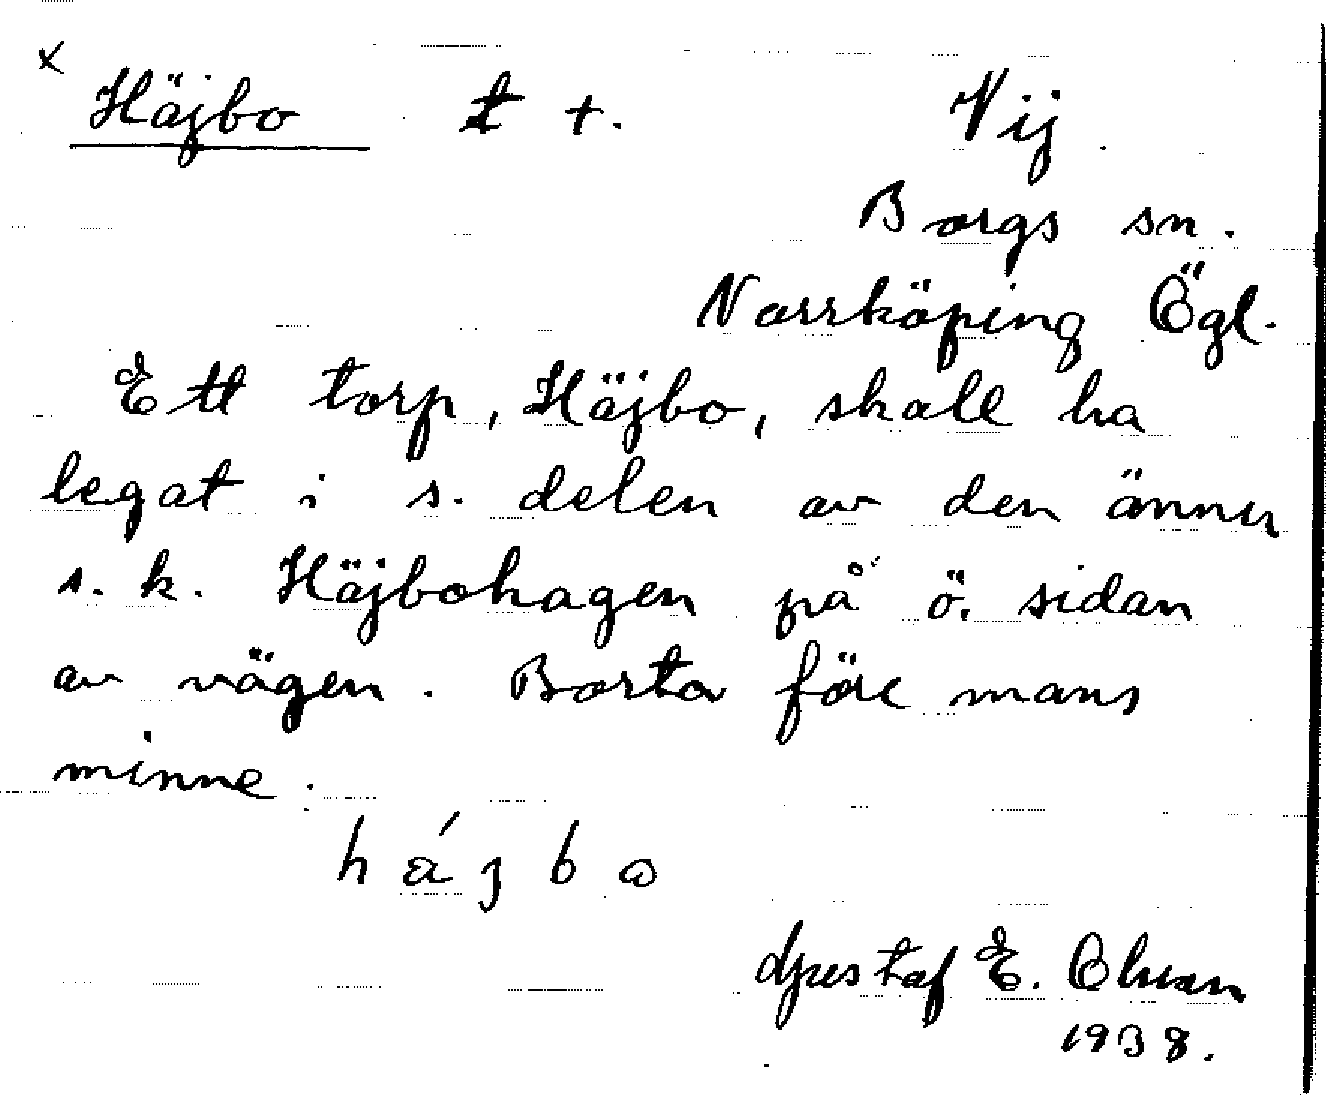 x
Häjbo t +. Vij
Borgs sn.
Norrköping Ögl.
Ett torp, Häjbo, skall ha
legat i s. delen av den ännu
s. k. Häjbohagen på ö. sidan
av vägen. Borta före mans
minne.
Gustaf E.
1938.